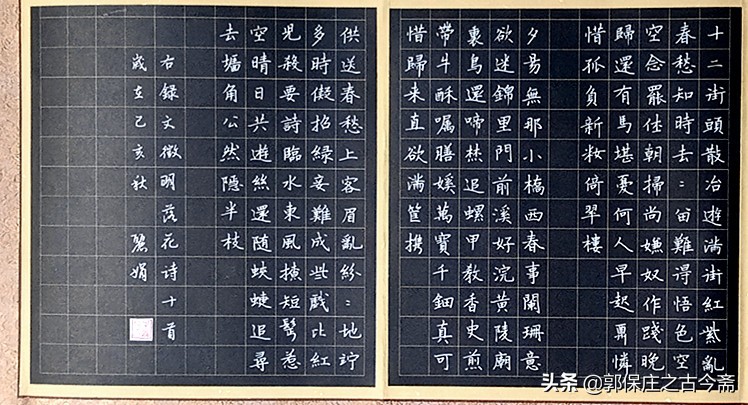 十二街頭散冶遊滿街紅紫亂
春愁知時去〻留難得悟色空
空念罷佳朝掃尚嫌奴作踐晚
歸還有馬堪憂何人早起憐
惜孤負新妝倚翠樓
夕昜無那小橋西春事闌珊意
欲迷錦里門前溪好浣黃陵廟
裏鳥還啼焚追螺甲教香史煎
帶牛酥囑膳媛萬寶千鈿真可
惜歸來直欲滿筐攜
供送春愁上客眉亂紛〻地竚
多時儗招綠妾難成些戲比紅
兒殺要詩臨水東風撩短鬢惹
空晴日共遊絲還随蛺蝶追尋
去墻角公然隱半枝
右録文徵明落花诗十首
歲在己亥秋 麗娟
头条 @郭保庄之古今斋